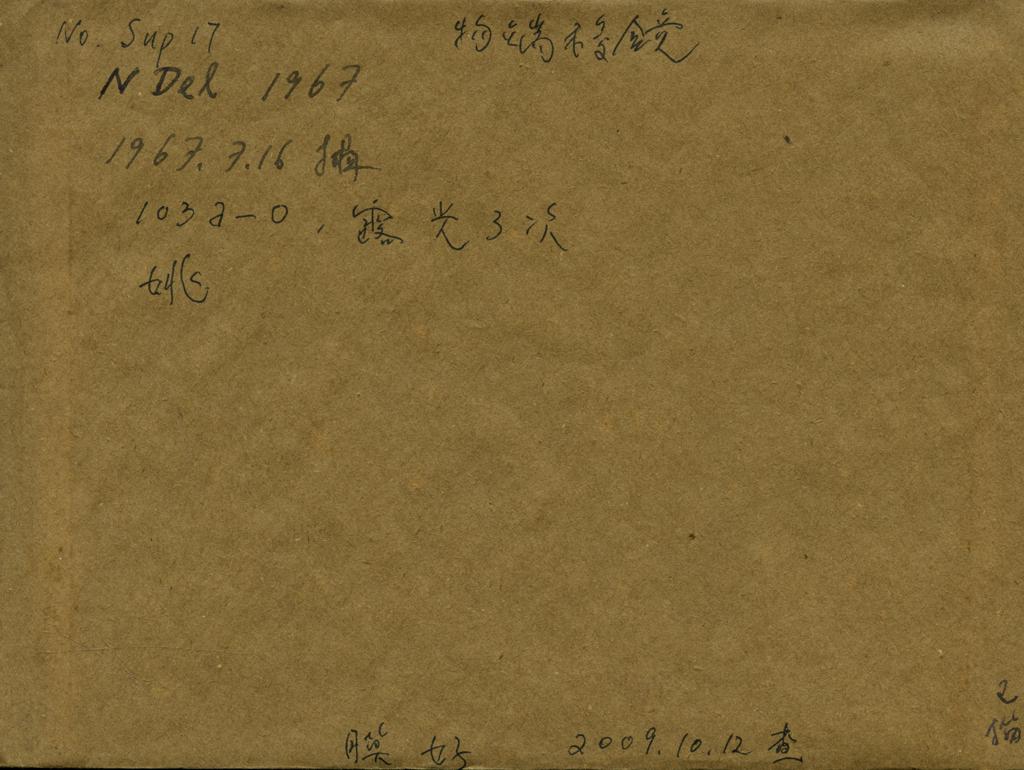 No. Sup 17
物端棱镜
N. Del 1967
1967.7.16 摄
103a-0, 露光3次
姚
膜好 2009.10.12 查
2
描